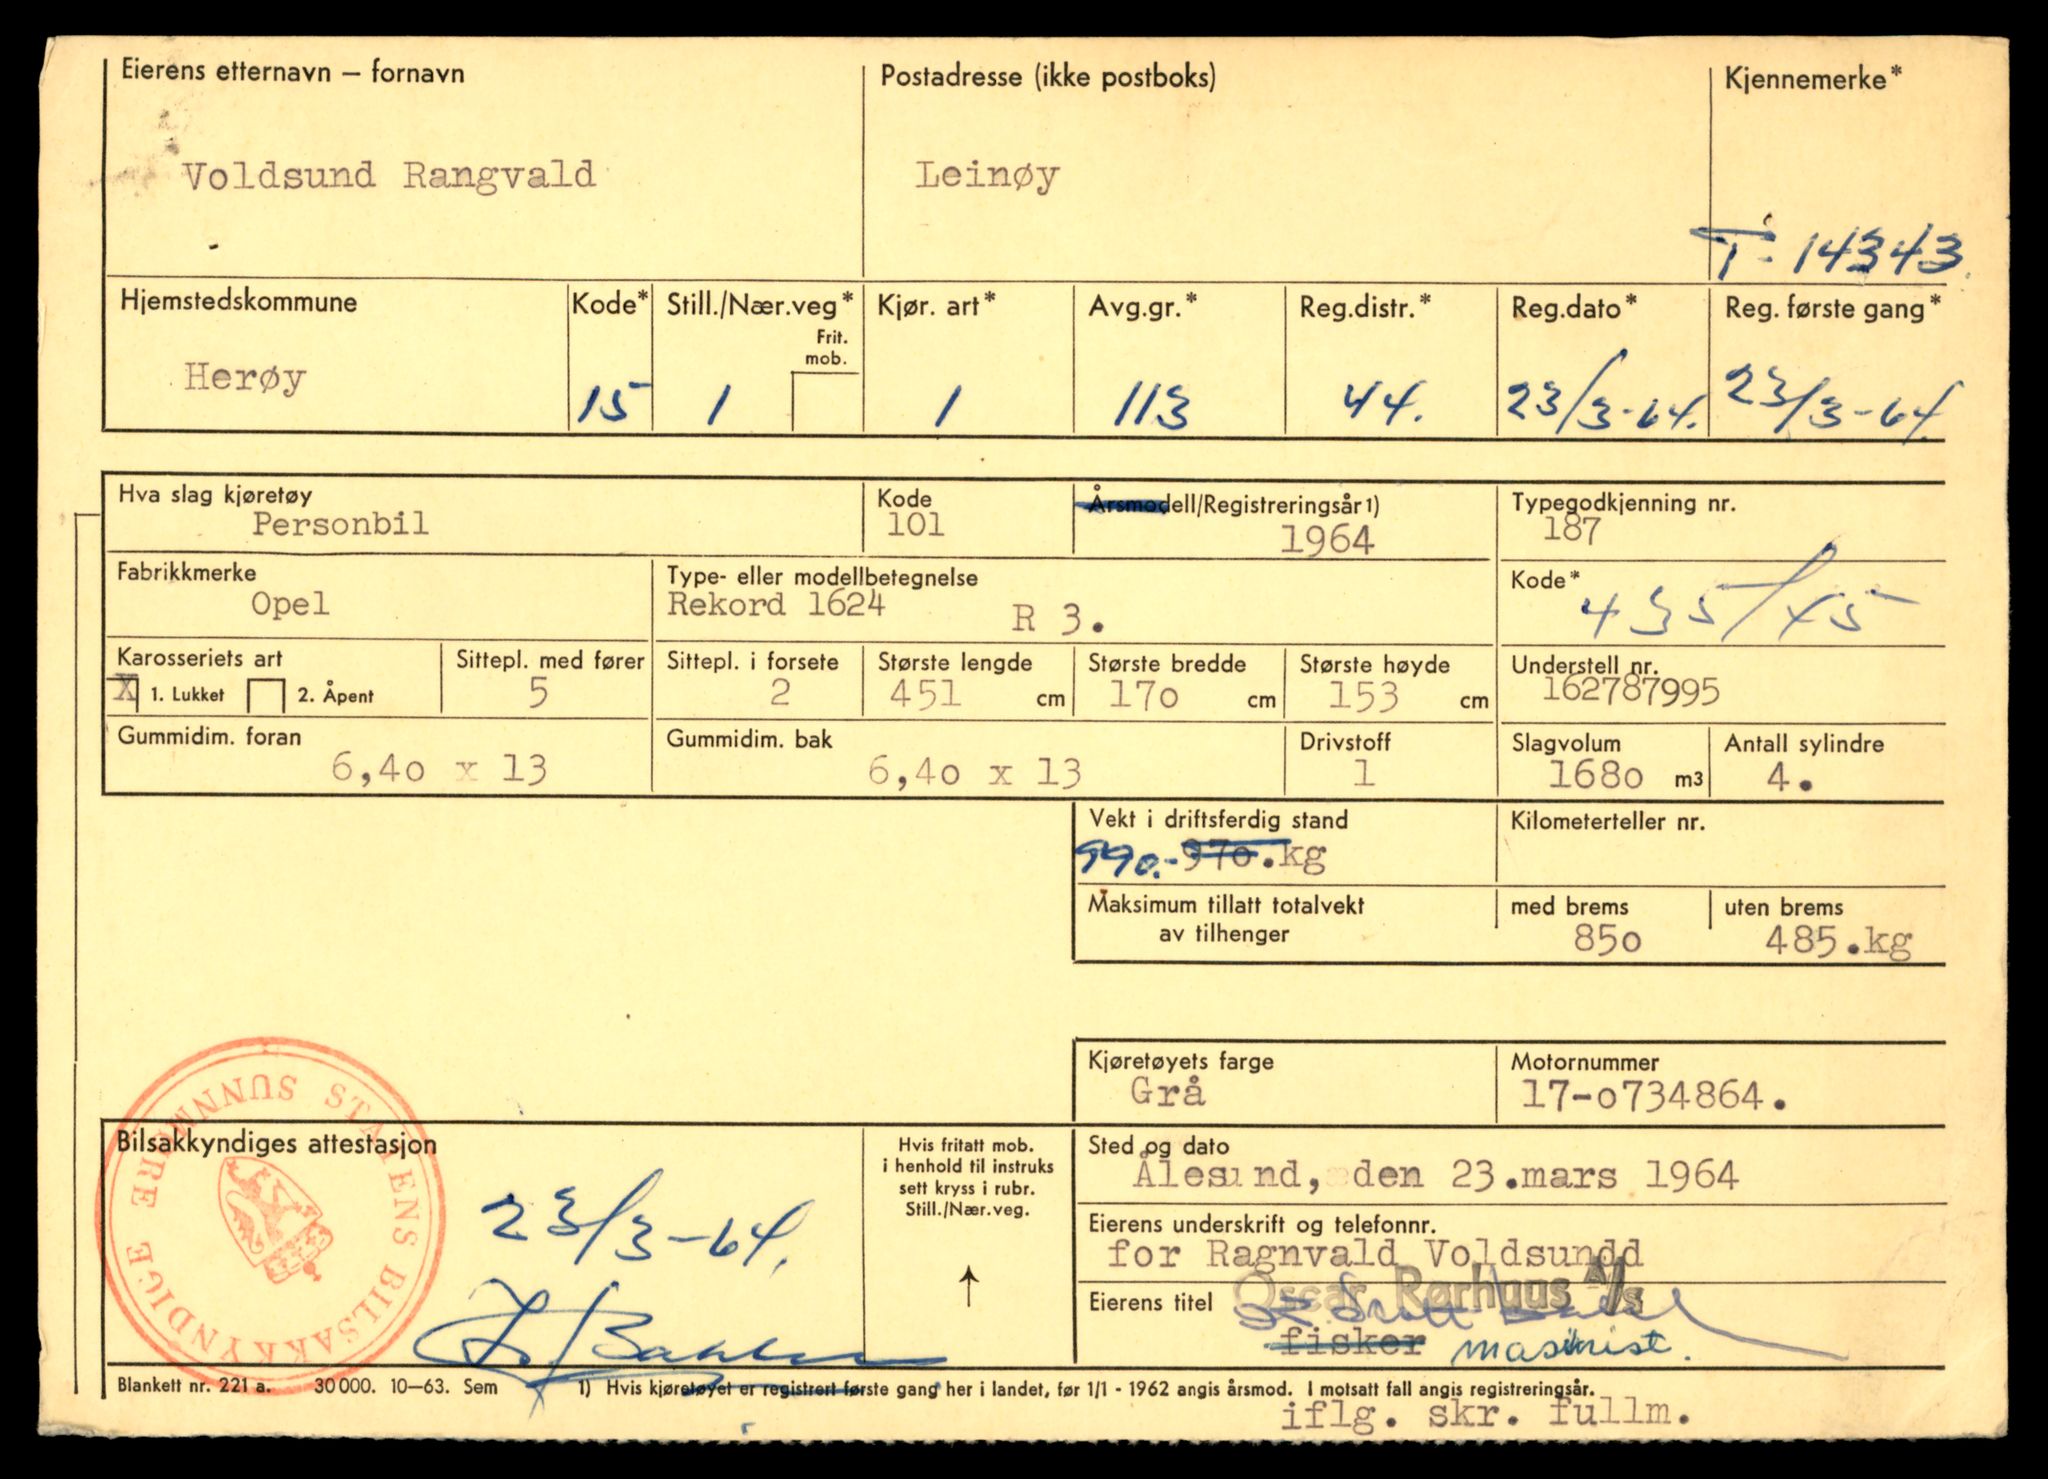 Eierens etternavn – fornavn
Voldsund Rangvald
Postadresse (ikke postboks)
Leinøy
Kjennemerke*
T- 14343.
Hjemstedskommune
Herøy
Kode*
15
Still./Nær.veg*
Frit. mob.
1
Kjør. art*
1
Avg.gr.*
113
Reg.distr.*
44.
Reg.dato*
23/3-64.
Reg. første gang*
23/3-64.
Hva slag kjøretøy
Personbil
Kode
101
Årsmodell/Registreringsår1)
1964
Typegodkjenning nr.
187
Fabrikkmerke
Opel
Type- eller modellbetegnelse
Rekord 1624 R 3.
Kode*
435/45
Karosseriets art
X 1. Lukket 2. Åpent
Sittepl. med fører
5
Sittepl. i forsete
2
Største lengde
451 cm
Største bredde
170 cm
Største høyde
153 cm
Understell nr.
162787995
Gummidim. foran
6,40 x 13
Gummidim. bak
6,40 x 13
Drivstoff
1
Slagvolum
1680 m3
Antall sylindre
4.
Vekt i driftsferdig stand
990.- 970.kg
Kilometerteller nr.
Maksimum tillatt totalvekt
av tilhenger
med brems
850
uten brems
485.kg
Kjøretøyets farge
Grå
Motornummer
17-0734864.
STATENS BILSAKKYNDIGE SUNNMØRE
Bilsakkyndiges attestasjon
23/3-64.
Hvis fritatt mob.
i henhold til instruks
sett kryss i rubr.
Still./Nær.veg.
↑
Sted og dato
Ålesund, den 23.mars 1964
Eierens underskrift og telefonnr.
for Ragnvald Voldsundd
Oscar Rørhuus A/s
Eierens titel
fisker masinist.
Blankett nr. 221 a. 30 000. 10-63. Sem
1) Hvis kjøretøyet er registrert første gang her i landet, før 1/1 - 1962 angis årsmod. I motsatt fall angis registreringsår.
iflg. skr. fullm.